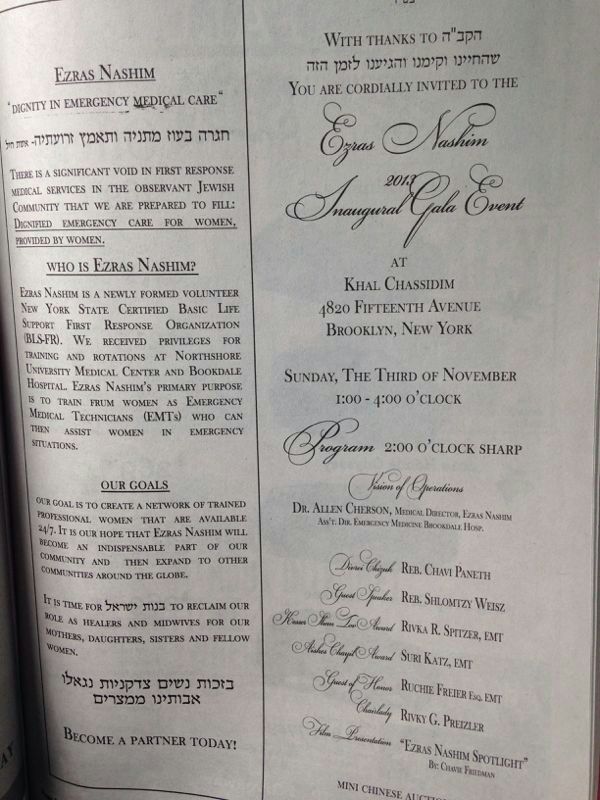 Ezras Nashim
"DIGNITY IN EMERGENCY MEDICAL CARE"
חגרה בעוז מתניה ותאמץ זרועתיה- אשת חיל
There is a significant void in first response
medical services in the observant Jewish
Community that we are prepared to fill:
Dignified emergency care for women,
provided by women.
WHO IS EZRAS NASHIM?
Ezras Nashim is a newly formed volunteer
New York State Certified Basic Life
Support First Response Organization
(BLS-FR). We received privileges for
training and rotations at Northshore
University Medical Center and Bookdale
Hospital. Ezras Nashim's primary purpose
is to train frum women as Emergency
Medical Technicians (EMTs) who can
then assist women in emergency
situations.
OUR GOALS
our goal is to create a network of trained
professional women that are available
24/7. It is our hope that Ezras Nashim will
become an indispensable part of our
community and then expand to other
communities around the globe.
It is time for בנות ישראל to reclaim our
role as healers and midwives for our
mothers, daughters, sisters and fellow
women.
בזכות נשים צדקניות נגאלו
אבותינו ממצרים
Become a partner today!
With thanks to הקב"ה
שהחיינו וקימנו והגיענו לזמן הזה
You are cordially invited to the
Ezras Nashim
2013
Inaugural Gala Event
AT
Khal Chassidim
4820 Fifteenth Avenue
Brooklyn, New York
Sunday, The Third of November
1:00 - 4:00 o'clock
Program 2:00 o'clock sharp
Vision of Operations
Dr. Allen Cherson, Medical Director, Ezras Nashim
Ass't. Dir. Emergency Medicine Brookdale Hosp.
Divrei Chizuk Reb. Chavi Paneth
Guest Speaker Reb. Shlomtzy Weisz
Kesser Shem Tov Award Rivka R. Spitzer, EMT
Aishes Chayil Award Suri Katz, EMT
Guest of Honor Ruchie Freier Esq. EMT
Chairlady Rivky G. Preizler
Film Presentation "Ezras Nashim Spotlight"
By: Chavie Friedman
MINI CHINESE AUCTION